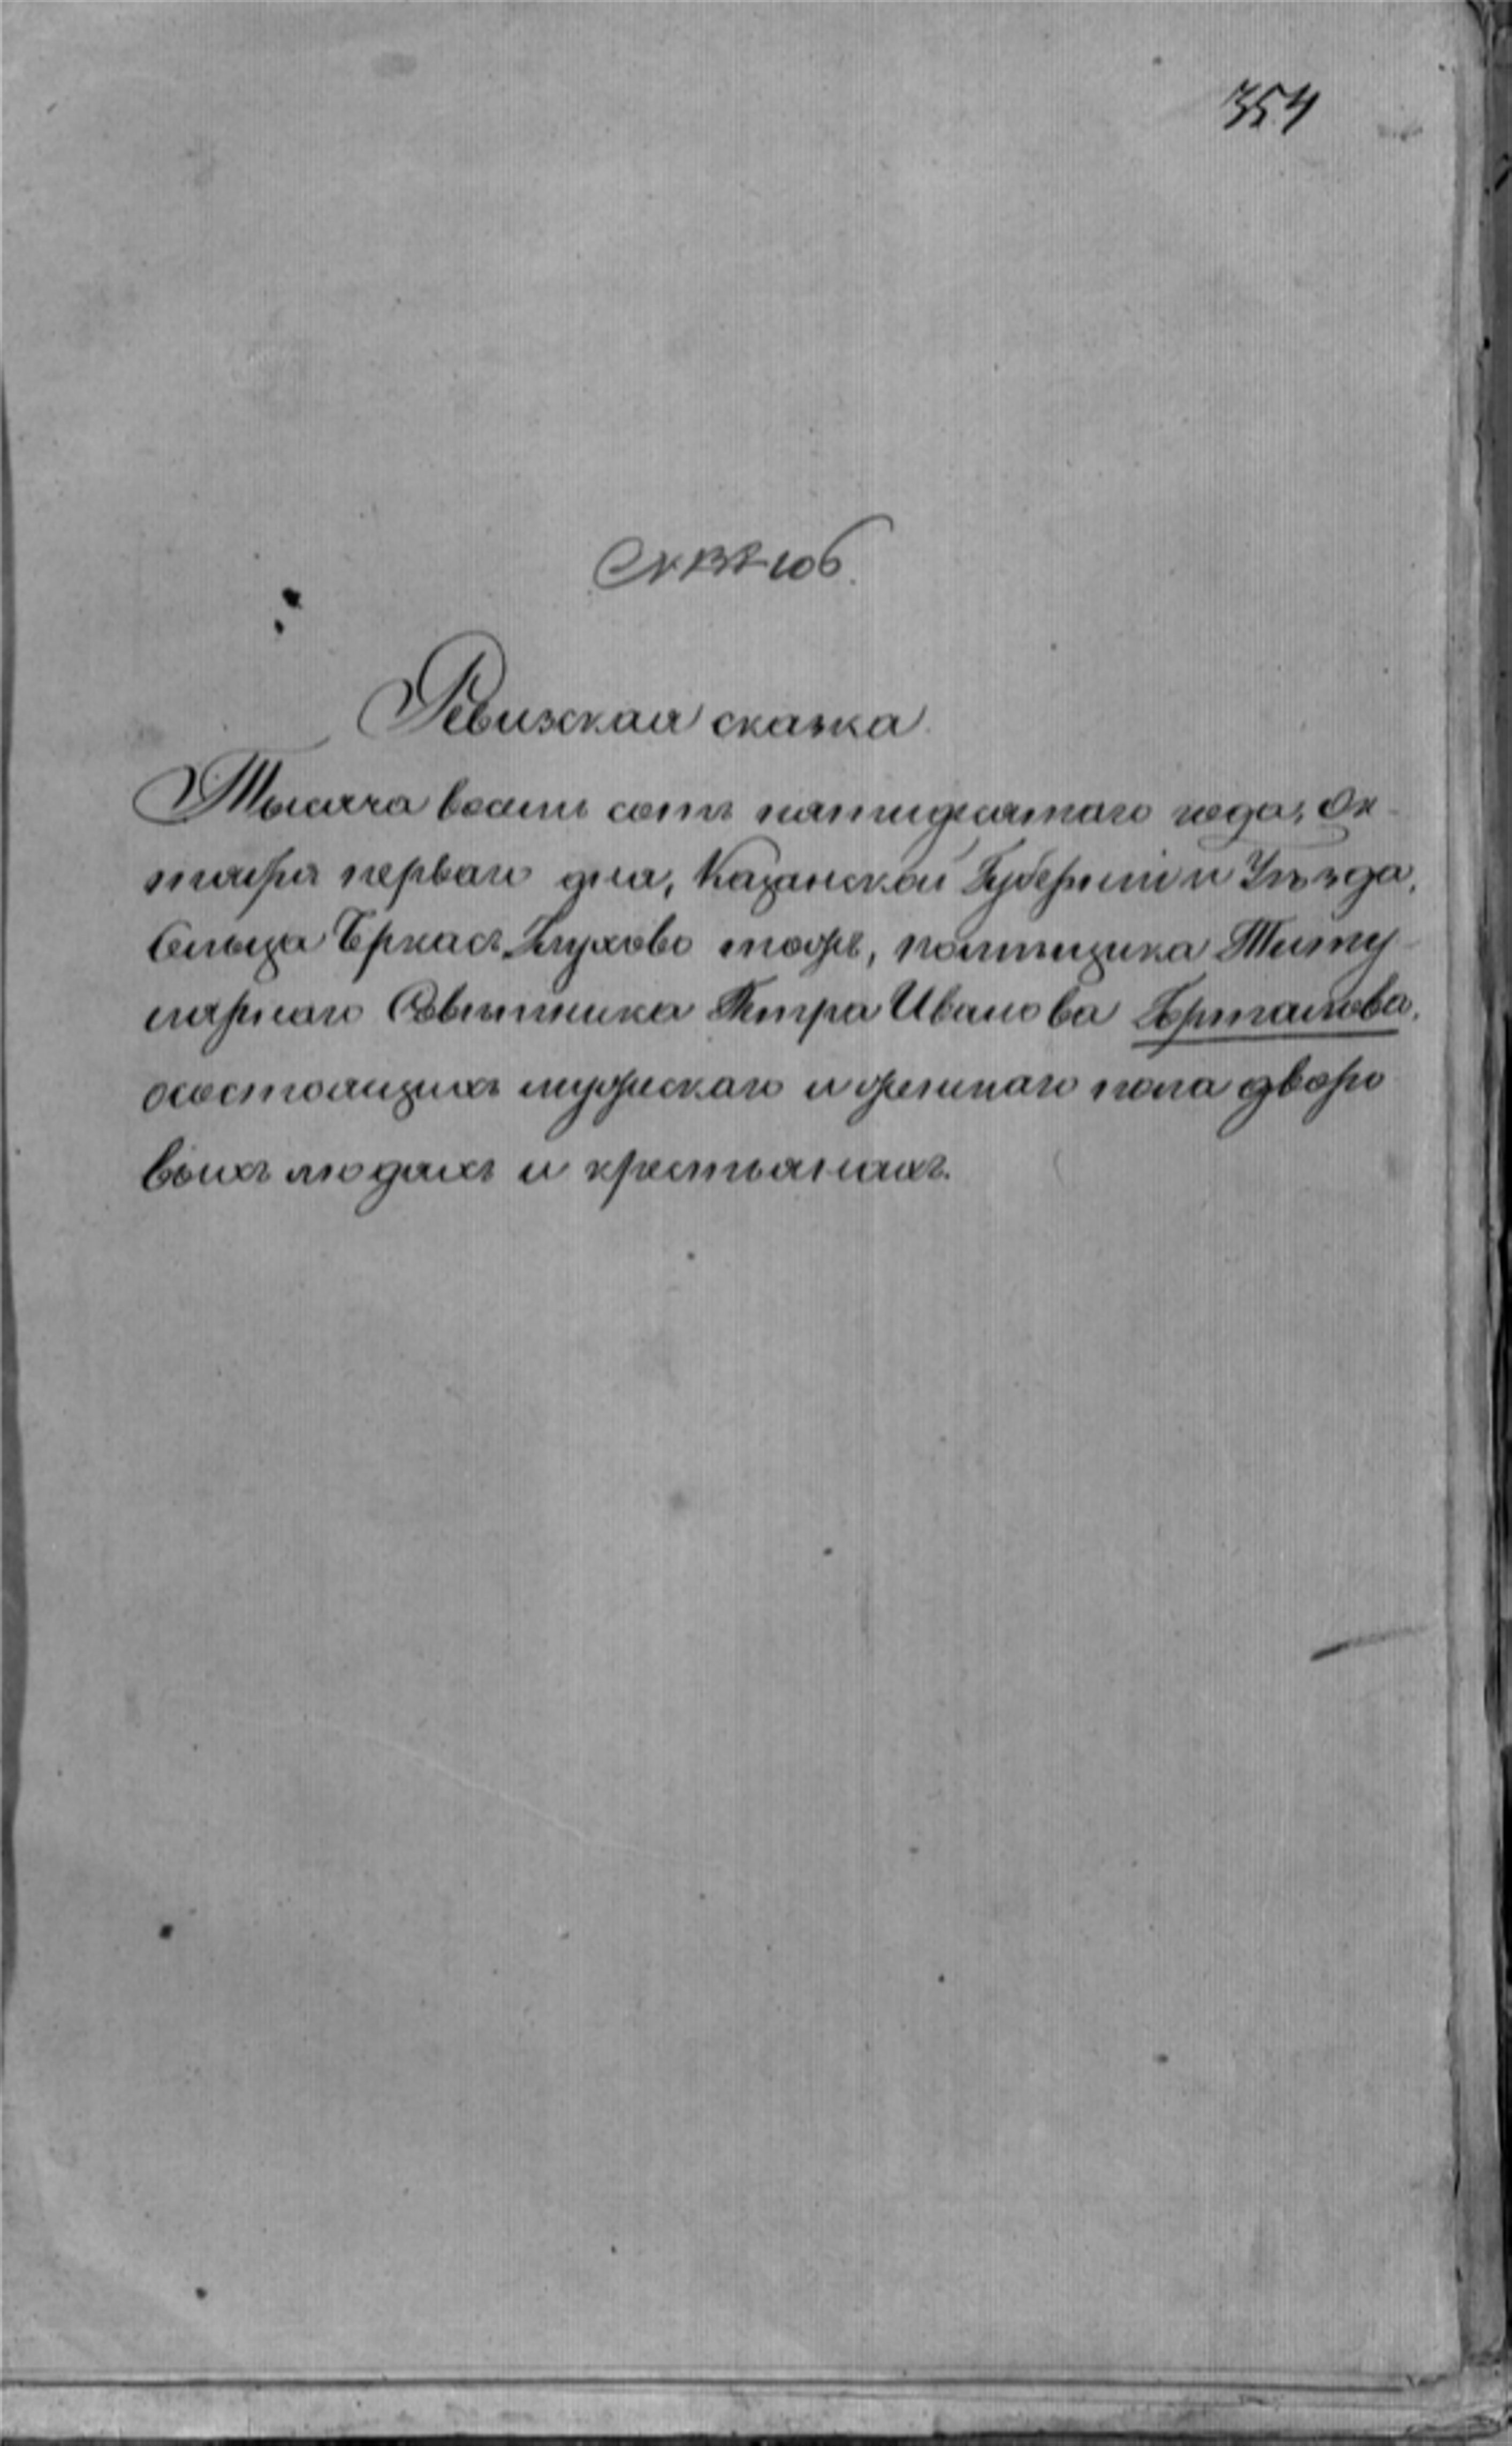 354
Ревизская сказка.
Тысяча восемь сотъ пятидесятаго года, Ок-
тября перваго дня, Казанской Губерніи и Уѣзда,
Сельца Еркасъ Глухово тожъ, помѣщика Титу-
лярнаго Совѣтника Петра Иванова
о состоящихъ мужескаго и женскаго пола дворо
выхъ людяхъ и крестьянахъ.